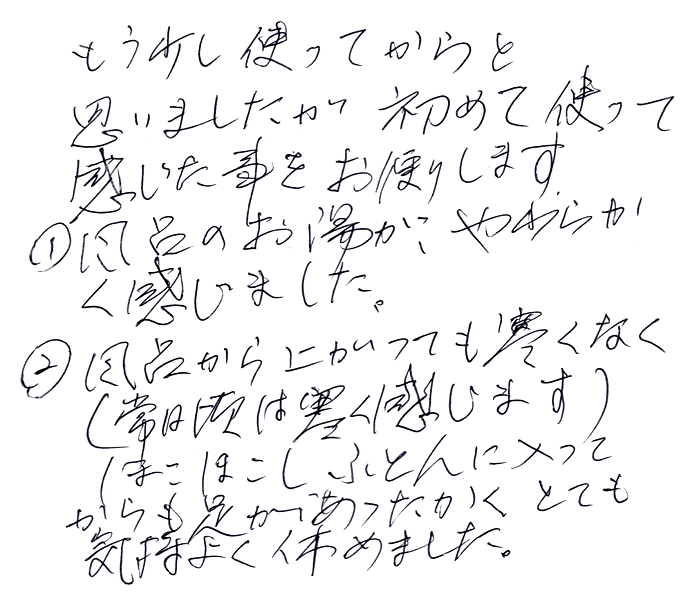 もう少し使ってからと
思いましたが初めて使って
感じた事をお便りします
①風呂のお湯がやわらか
く感じました。
②風呂から上がっても寒くなく
(常日頃は寒く感じます)
ほこほこしふとんに入って
からも足があったかくとても
気持よく休めました。